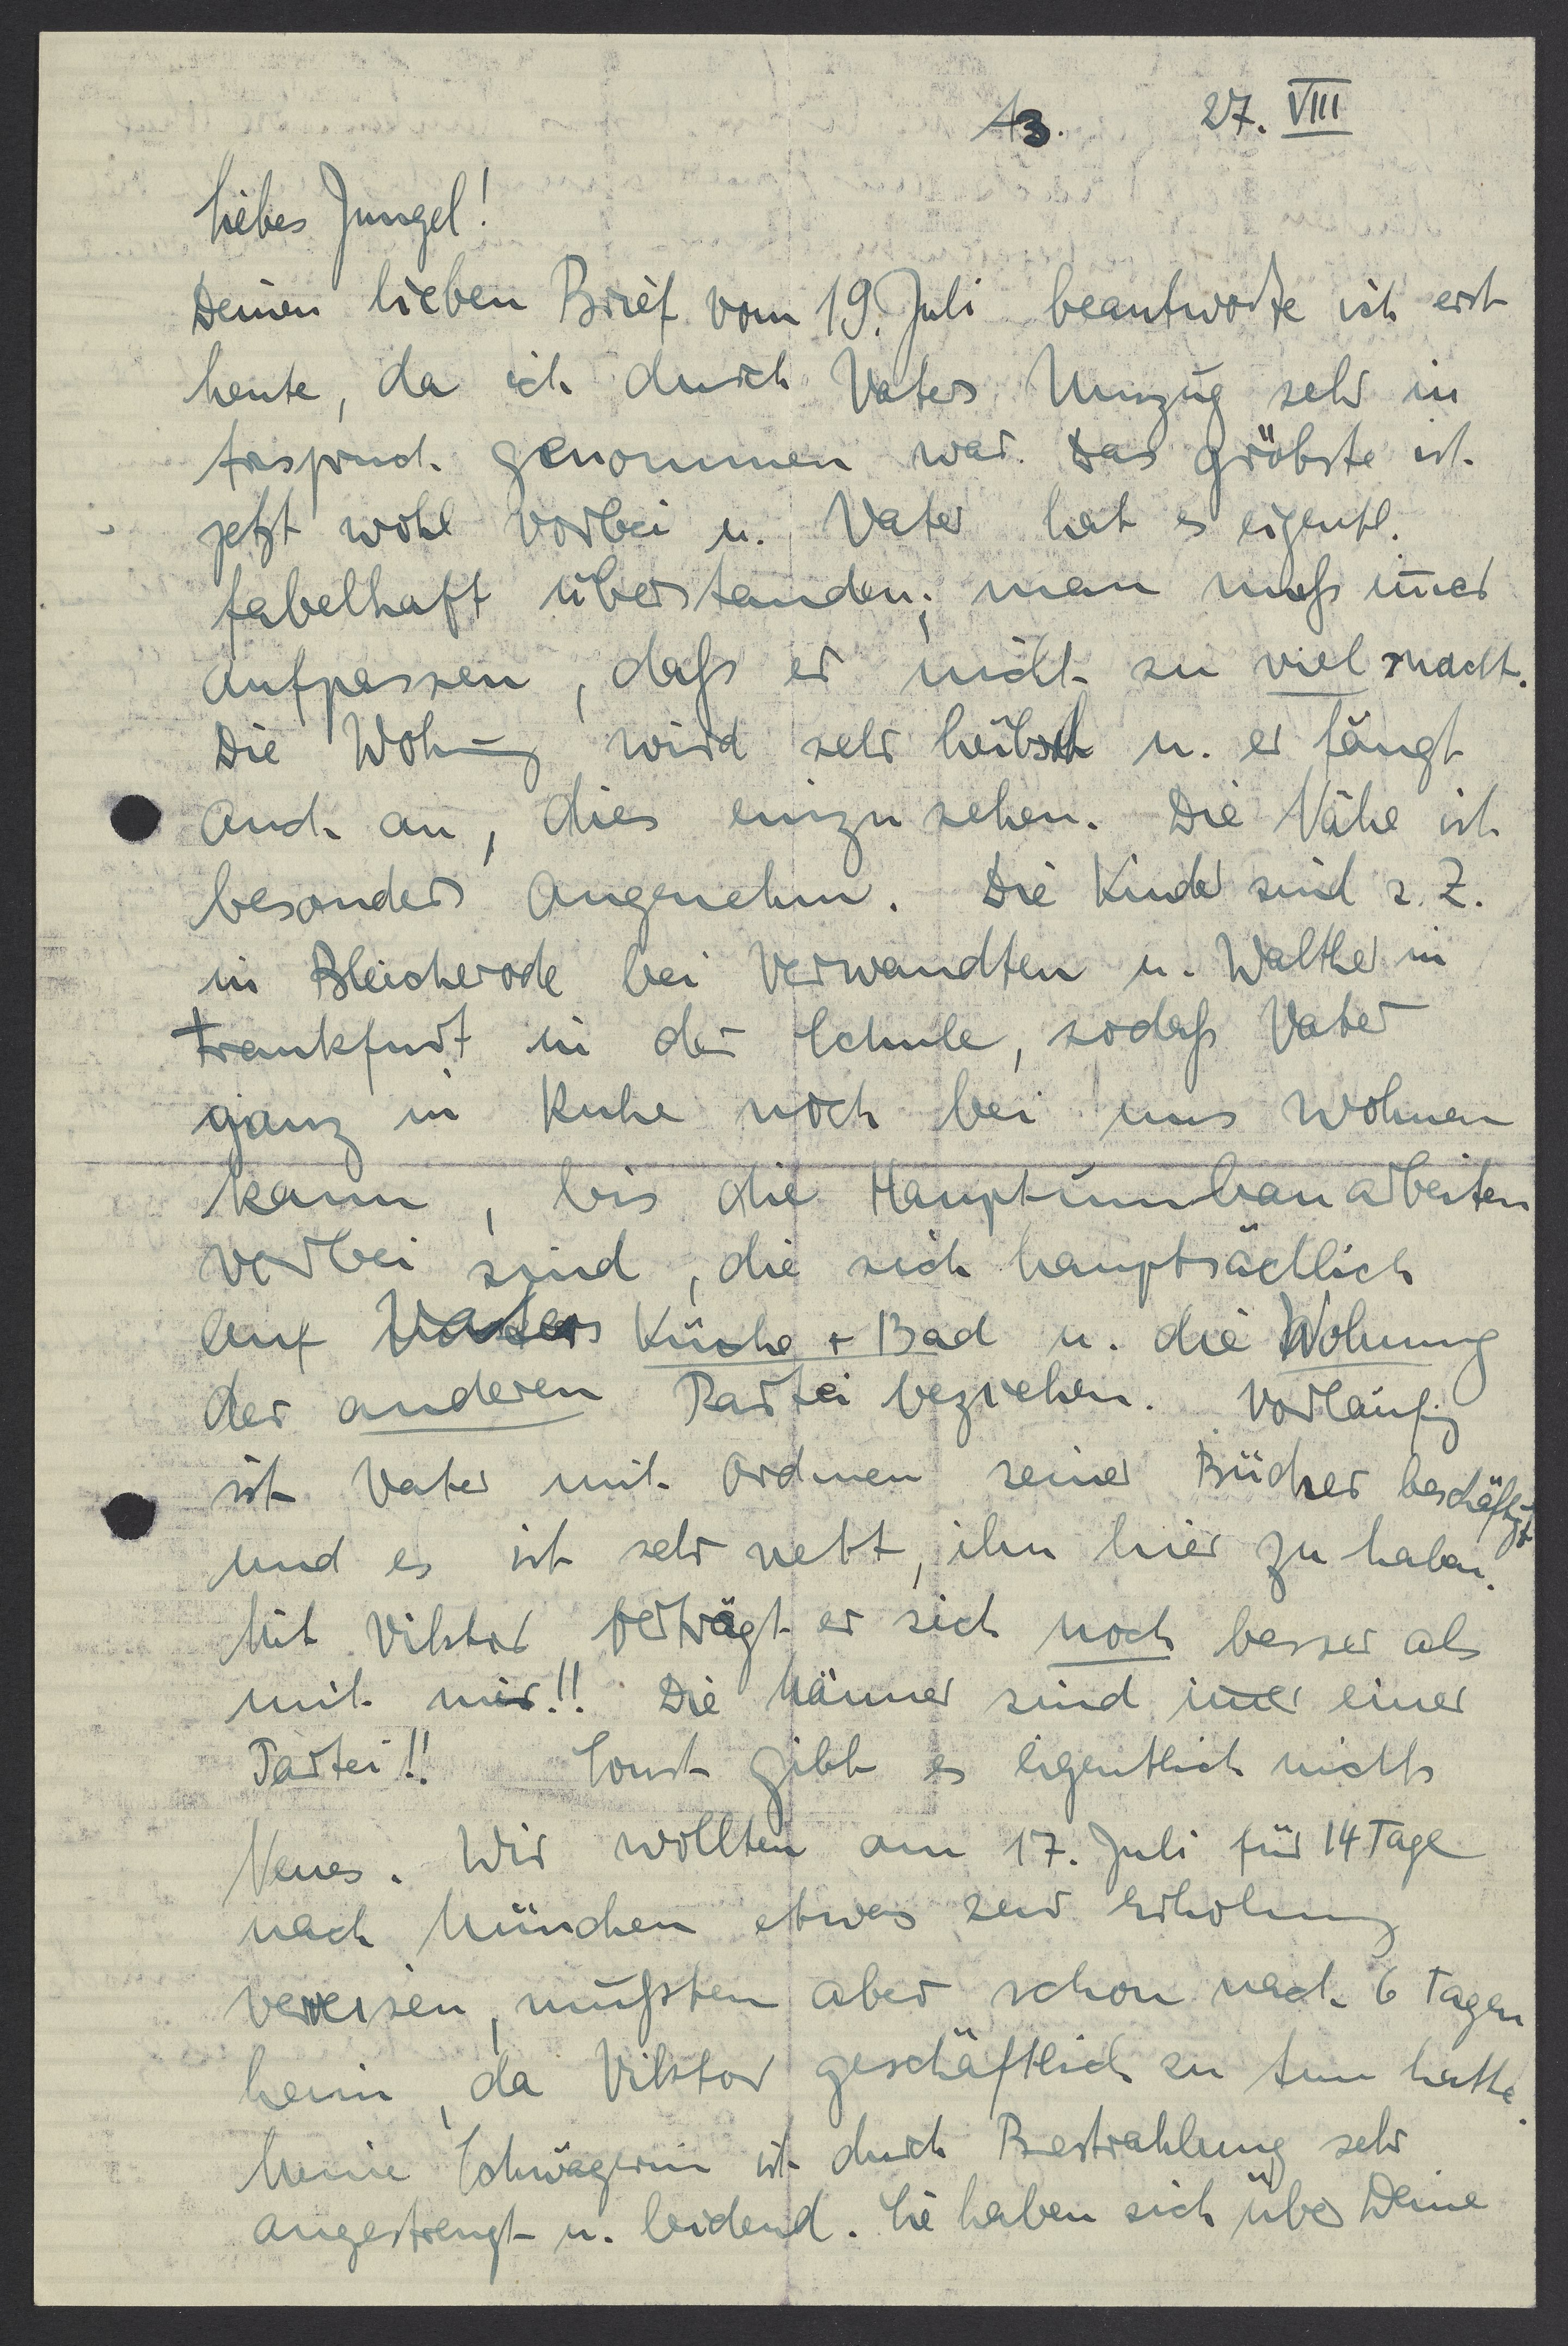 13. 27. VIII
Liebes Jungel!
Deinen lieben Brief vom 19. Juli beantworte ich erst
heute, da ich durch Vaters Umzug sehr in
Anspruch genommen war. Das gröbste ist
jetzt wohl vorbei u. Vater hat es eigentl.
fabelhaft überstanden; man muß im̄er
aufpassen, daß er nicht zu viel macht.
Die Wohnung wird sehr hübsch u. er fängt
auch an, dies einzusehen. Die Nähe ist
besonders angenehm. Die Kinder sind z. Z.
in Bleicherode bei Verwandten u. Walther in
Frankfurt in der Schule, sodaß Vater
ganz in Ruhe noch bei uns wohnen
kann, bis die Hauptumbauarbeiten
vorbei sind, die sich hauptsächlich
auf Vaters Küche + Bad u. die Wohnung
der anderen Partei beziehen. Vorläufig
ist Vater mit Ordnen seiner Bücher beschäftigt
und es ist sehr nett, ihn hier zu haben.
Mit Viktor verträgt er sich noch besser als
mit mir!! Die Männer sind im̄er einer
Partei!! Sonst gibt es eigentlich nichts
Neues. Wir wollten am 17. Juli für 14 Tage
nach München etwas zur Erholung
verreisen, mußten aber schon nach 6 Tagen
heim, da Viktor geschäftlich zu tun hatte.
Meine Schwägerin ist durch Bestrahlung sehr
angestrengt u. leidend. Sie haben sich über Deine